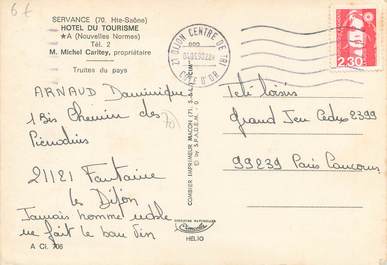 6€
SERVANCE (70. Hte-Saône)
HOTEL DU TOURISME
★A (Nouvelles Normes)
Tél. 2
M. Michel Caritey, propriétaire
Truites du pays
ARNAUD Dominique
1 Bis Chemin des
21121 Fontaine
les Dijon
Jamais homme noble
ne fait le bon vin
A Cl. 706
(70)
COMBIER IMPRIMEUR MACON (71. S.-&-L.) "CIM"
© by S.P.A.D.E.M.
Cimcolor
HELIO
21 DIJON CENTRE DE TRI
COTE D'OR
2,30
Télé loisirs
Grand Jeu Cedex 2399
99239 Paris Concours